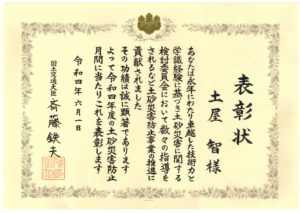 表彰状
土屋 智 様
あなたは永年にわたり卓越した技術力と
学識経験に基づき土砂災害に関する
検討委員会において数々の指導を
されるなど土砂災害防止事業の推進に
貢献されました
その功績は誠に顕著であります
よって令和四年度の土砂災害防止
月間に当たりこれを表彰します
令和四年六月一日
国土交通大臣 斉藤鉄夫